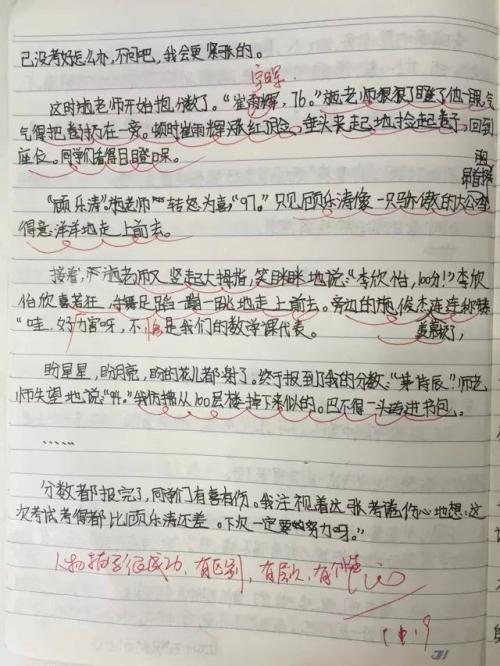 己没考好怎么办,不问吧,我会更紧张的。
这时施老师开始报分数了。“崔雨辉,76。”施老师狠狠了瞪了他一眼,气
气得把卷扔在一旁。顿时崔雨辉涨红了脸,垂头来起地捡起卷子,回到
座位。同学们看得目瞪口呆。
“顾乐清。”施老师转怒为喜,“97。”只见顾乐清像一只骄傲的大公鸡
得意洋洋地走上前去。
接着,施老师又竖起大拇指,笑眯眯地说:“李欣怡,100分!”李欣
怡欣喜若狂,手舞足蹈一蹦一跳地走上前去。旁边的施俊杰连连称赞
“哇,好厉害呀,不愧是我们的数学课代表。
盼星星,盼月亮,盼的花儿都谢了。终于报到了我的分数。
师失望地说:“94。”我仿拂从100层楼掉下来似的。巴不得一头砖进书包。
……
分数都报完了,同学们有喜有伤。我注视着这张考卷,伤心地想:这
次考试考得都比顾乐清还差。下次一定要努力呀。”
人物描写很成功,有区别,有层次,有个性